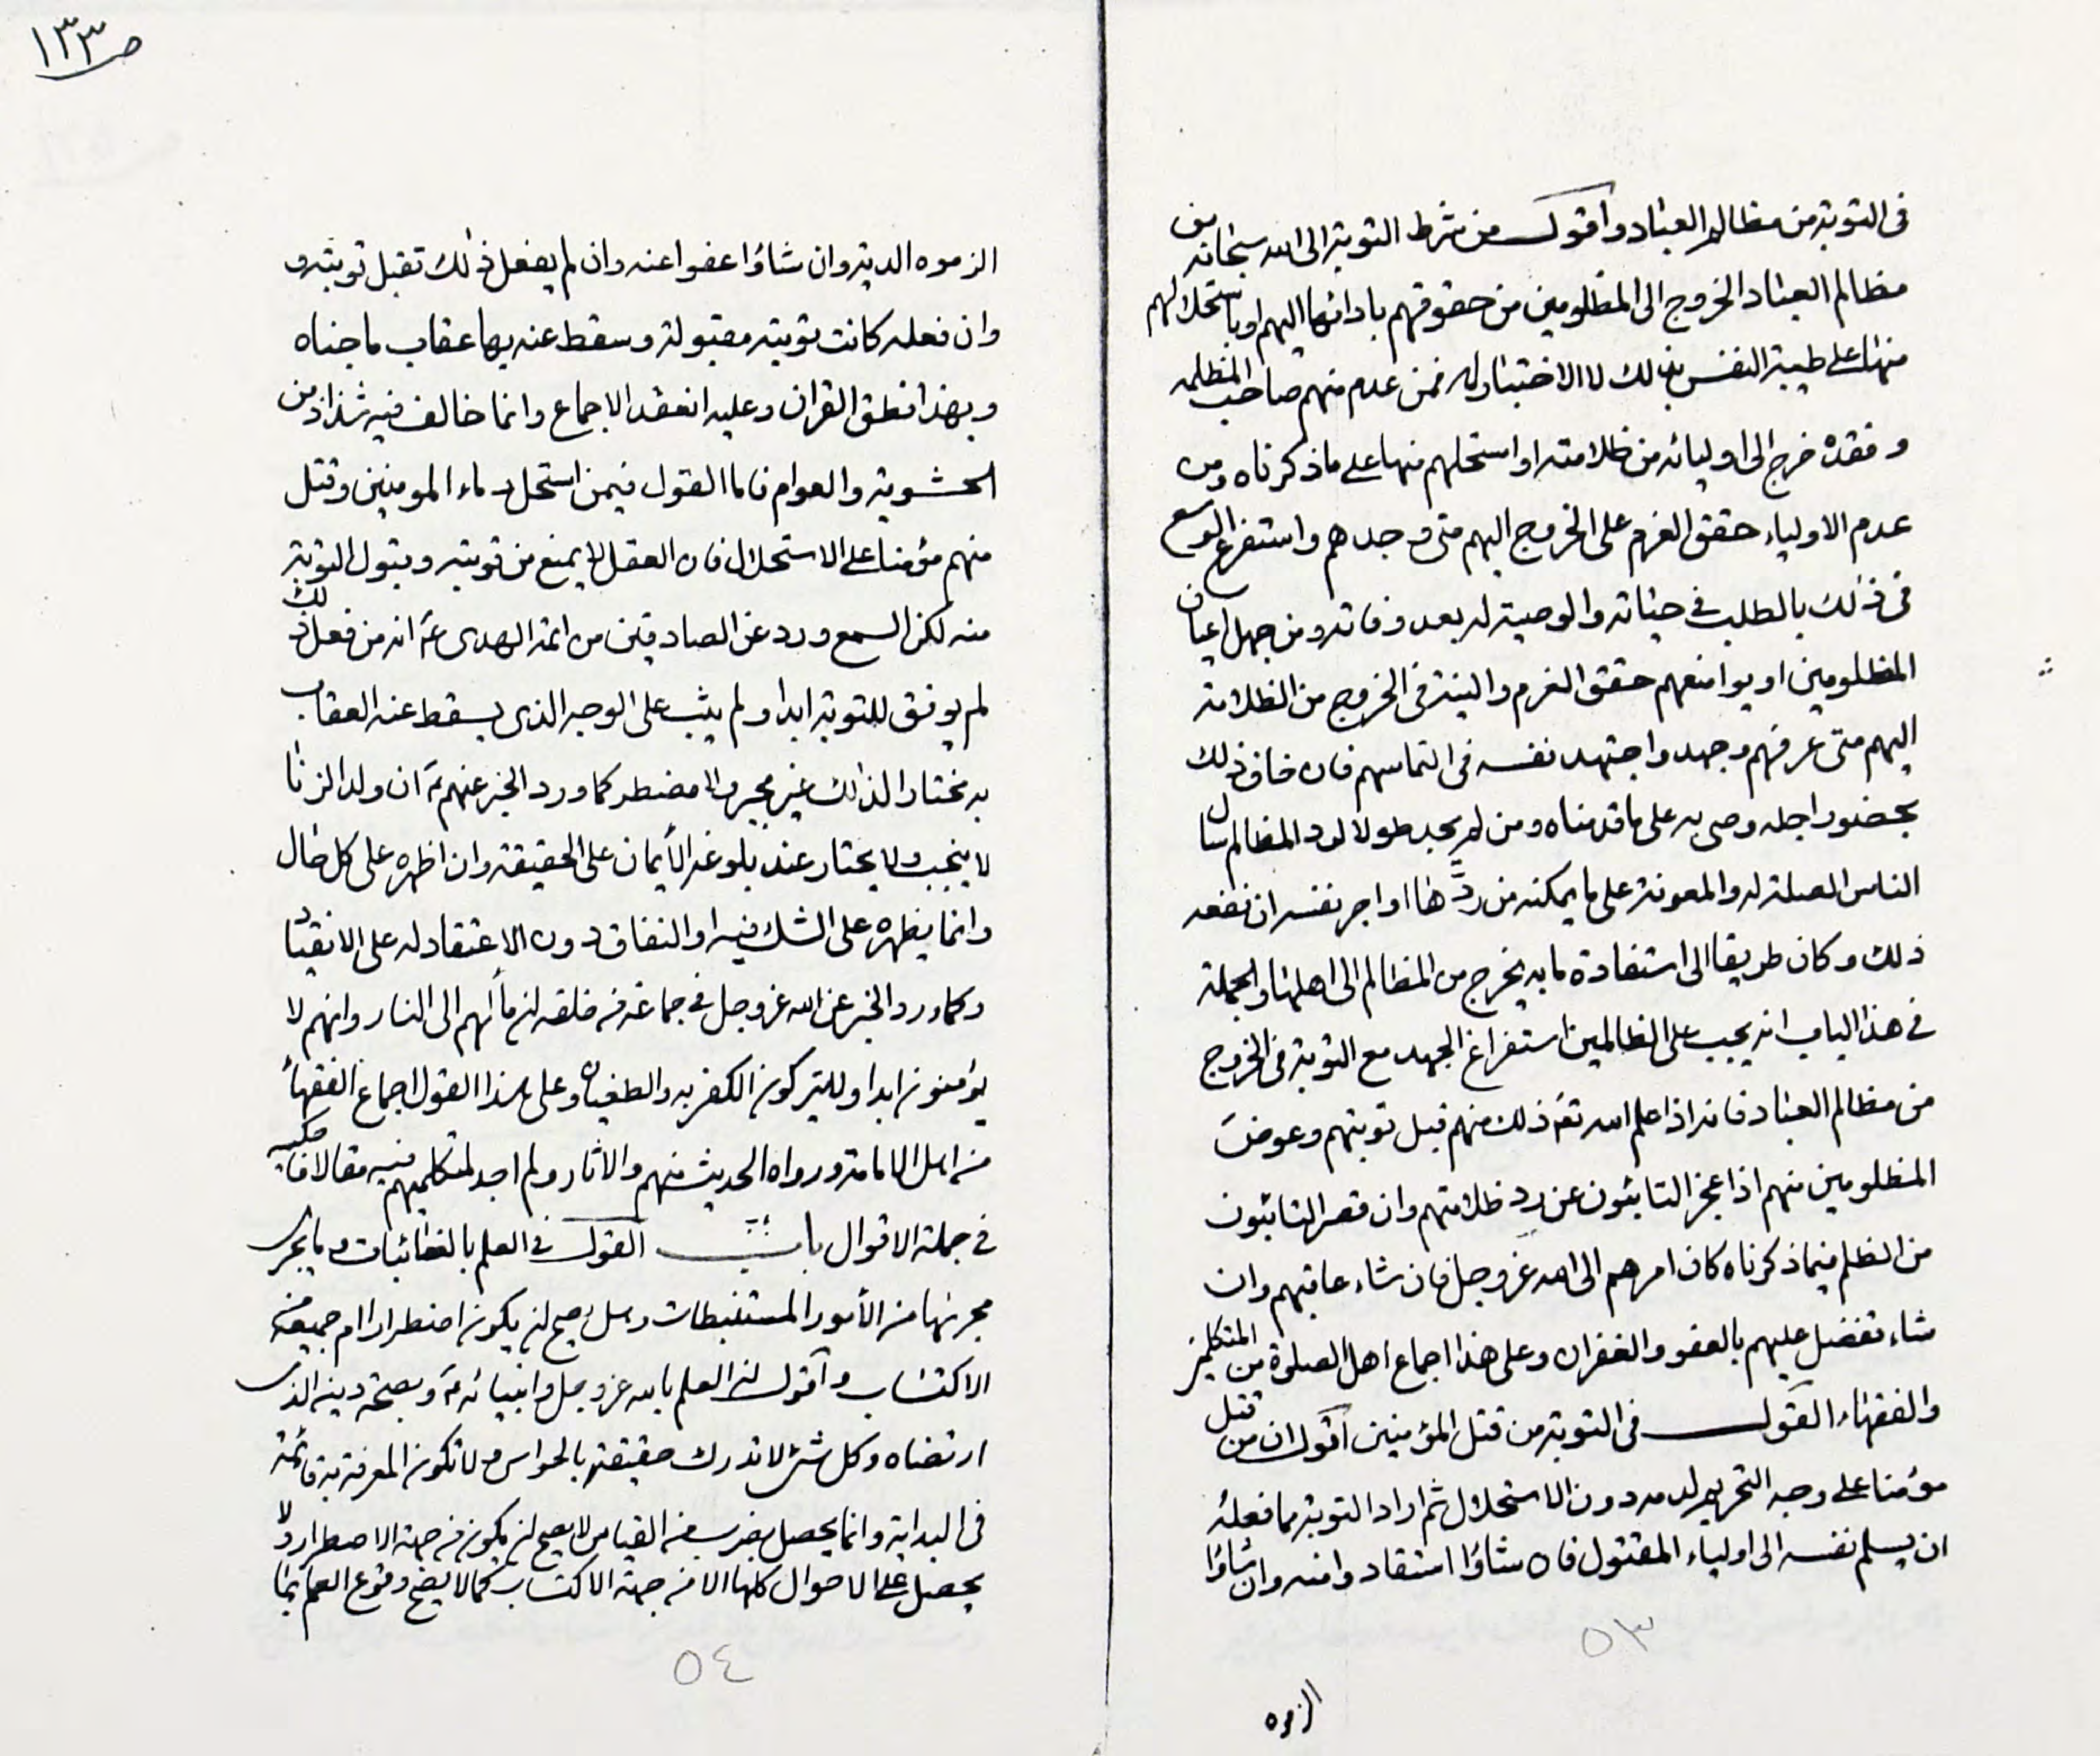 في التوبة من مظالم العباد وأقول من شرط التوبة الى الله سبحانه من
مظالم العباد الخروج الى المظلومين من حقوقهم بادائها اليهم او باستحلالهم
منها على طيبة النفس بذلك لا الاختيار له فمن عدم منهم صاحب المظلمه
وفقده خرج الى اوليائه من ظلامته او استحلهم منها على ما ذكرناه ومن
عدم الاولياء حقق العزم على الخروج اليهم متى وجدهم واستفرغ الوسع
في ذلك بالطلب في حياته والوصية له بعد وفاته ومن جهل اعيان
المظلومين او مواضعهم حقق العزم والنية في الخروج من الظلامة
اليهم متى عرفهم وجهد واجتهد نفسه في التماسهم فان خاف ذلك
بحضور اجله وصى به على ما قدمناه ومن لم يجد طولا لرد المظالم سال
الناس الصلة له والمعونة على ما يمكنه من ردها او اجر نفسه ان نفعه
ذلك وكان طريقا الى استفادة ما به يخرج من المظالم الى اهلها والجملة
في هذا الباب انه يجب على الظالمين استفراغ الجهد مع التوبة في الخروج
من مظالم العباد فانه اذا علم الله تع ذلك منهم قبل توبتهم وعوض
المظلومين منهم اذا عجز التائبون عن رد ظلامتهم وان قصر التائبون
من الظلم فيما ذكرناه كان امرهم الى الله عز وجل فان شاء عاقبهم وان
شاء تفضل عليهم بالعفو والغفران وعلى هذا اجماع اهل الصلوة من المتكلمين
والفقهاء القول في التوبة من قتل المؤمنين اقول ان من قتل
مؤمنا على وجه التحريم لدمه دون الاستحلال ثم اراد التوبة مما فعله
ان يسلم نفسه الى اولياء المقتول فان شاؤا استقادوا منه وان شاؤا
٥٣
الزموه
ص ١٣٣
الزموه الدية وان شاؤا عفوا عنه وان لم يفعل ذلك تقبل توبته و
وان فعله كانت توبته مقبولة وسقط عنه بها عقاب ما جناه
وبهذا نطق القران وعليه انعقد الاجماع وانما خالف فيه شذاذ من
الحشوية والعوام فاما القول فيمن استحل دماء المومنين وقتل
منهم مؤمنا على الاستحلال فان العقل لا يمنع من توبته وقبول التوبة
منه لكن السمع ورد عن الصادقين من ائمة الهدى ع انه من فعل ذلك
لم يوفق للتوبة ابدا ولم يتب على الوجه الذي يسقط عنه العقاب
به مختارا لذلك غير مجبر ولا مضطر كما ورد الخبر عنهم ع ان ولد الزنا
لا ينجب ولا يختار عند بلوغه الأيمان على الحقيقة وان اظهره على كل حال
وانما يظهره على الشك فيه او النفاق دون الاعتقاد له على الانقياد
وكما ورد الخبر عن الله عز وجل في جماعة من خلقه ان مألهم الى النار وانهم لا
يؤمنون ابدا ولا يتركون الكفر به والطغيان وعلى هذا القول اجماع الفقهاء
من اهل الامامة ورواه الحديث منهم والاثار ولم اجد لمتكلميهم فيه مقالا فاحكيه
في جملة الاقوال باب القول في العلم بالغائبات وما يجرى
مجريها من الأمور المستنبطات وهل يصح ان يكون اضطرارا ام جميعه من
الاكتساب وأقول ان العلم بالله عز وجل وانبيائه ع وبصحة دينه الذى
ارتضاه وكل شئ لا تدرك حقيقته بالحواس ولا تكون المعرفة به قائمة
في البداية وانما يحصل بضرب من القياس لا يصح ان يكون من جهة الاضطرار ولا
يحصل على الاحوال كلها الا من جهة الاكتساب كما لا يصح وقوع العلم بما
٥٤